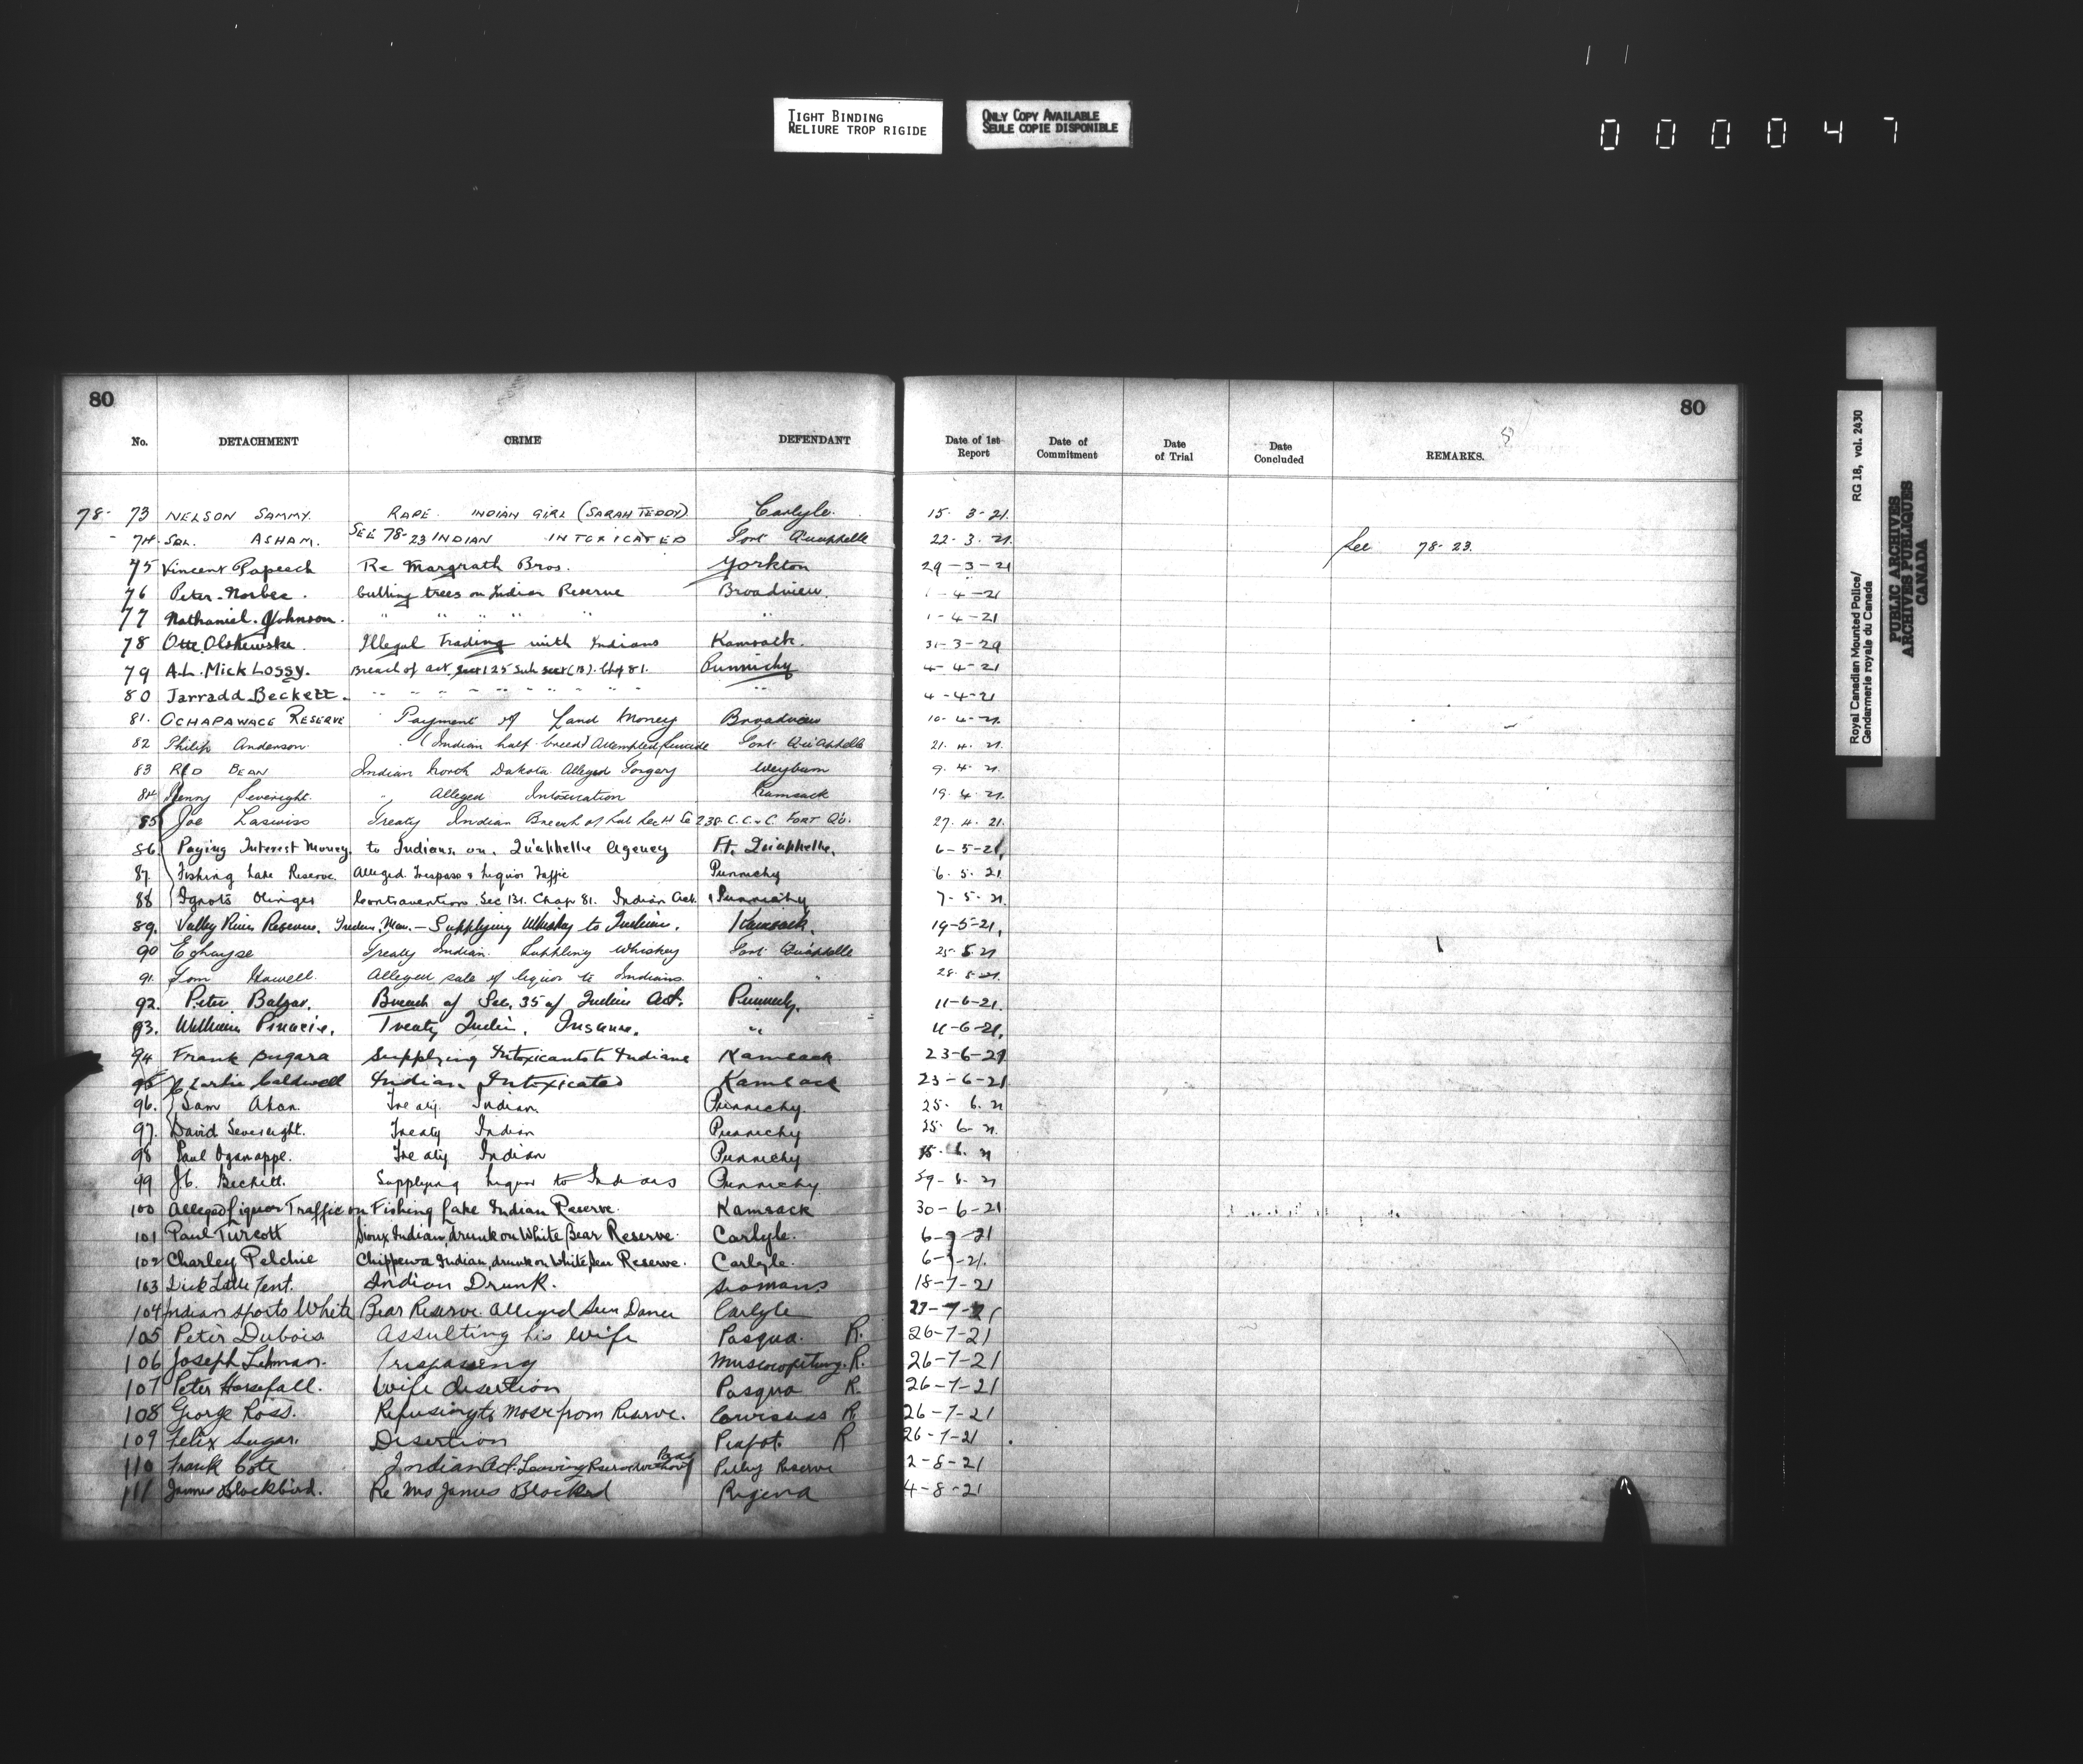 TIGHT BINDING
RELIURE TROP RIGIDE
ONLY COPY AVAILABLE
SEULE COPIE DISPONIBLE
000047
80 80
No. DETACHMENT CRIME DEFENDANT Date of 1st Report Date of Commitment Date of Trial Date Concluded REMARKS.
78- 73 NELSON SAMMY. RAPE INDIAN GIRL (SARAH TEDDY) Carlyle. 15. 3-21.
- 74. SOL. ASHAM. SEE 78-23 INDIAN INTOXICATED Fort Quappelle 22. 3. 21. See 78-23.
75 Vincent Papeech Re Margrath Bros. Yorkton 29-3-21
76 Peter Norbee. Cutting trees on Indian Reserve Broadview. 1-4-21
77 Nathaniel Johnson. " " " " " " 1-4-21
78 Otte Olskewiske Illegal Trading with Indians Kamsack. 31-3-29
79 A.L. Mick Lossy. Breach of act Sect 125 Sub sect (B). Chap 81. Punnichy 4-4-21
80 Jarradd Beckett. " " " " " " " " 4-4-21
81. OCHAPAWACE RESERVE Payment of Land Money Broadview 10-4-21.
82 Philip Anderson. (Indian half-breed) Attempted Suicide Fort Qu'Appelle 21. 4. 21.
83 RED BEAN Indian North Dakota Alleged Forgery Weyburn 9. 4. 21.
84 Henry Severight. " Alleged Intoxication Kamsack 19. 4. 21.
85 Joe Laswiss Treaty Indian Breach of Sub Sec H Se 238 C.C. of C. FORT Q'o. 27. 4. 21.
86. Paying Interest Money to Indians on Qu'appelle Agency Ft. Qu'appelle. 6-5-21.
87. Fishing Lake Reserve. Alleged Trespass & Liquor Traffic Punnichy 6. 5. 21
88 Ignots Olinger Contravention Sec 131. Chap 81. Indian Act. Punnichy 7-5-21.
89. Valley River Reserve. Indian, Man. - Supplying Whiskey to Indians. Kamsack. 19-5-21.
90 Echayse Treaty Indian. Suppling Whiskey Fort Quappelle 25. 5. 21
91. Tom Howell. Alleged sale of liquor to Indians. " " 28. 5. 21.
92. Peter Balzar. Breach of Sec. 35 of Indian Act. Punnichy. 11-6-21.
93. William Pinacie. Treaty Indian, Insane. " 11-6-21.
94 Frank Sugara Supplying Intoxicants to Indians Kamsack 23-6-21
95 Charlie Caldwell Indian Intoxicated Kamsack 23-6-21
96. Sam Akan. Treaty Indian. Punnichy. 25. 6. 21
97. David Severight. Treaty Indian Punnichy 25. 6. 21.
98 Paul Oganappe. Treaty Indian Punnichy 6. 21
99 J.C. Beckett. Supplying liquor to Indians Punnichy 29-6-21
100 Alleged Liquor Traffic on Fishing Lake Indian Reserve. Kamsack 30-6-21
101 Paul Turcott Sioux Indian, drunk on White Bear Reserve. Carlyle. 6-7-21
102 Charley Pelchie Chippewa Indian, drunk on White Bear Reserve. Carlyle. 6-7-21.
103 Dick Little Tent. Indian Drunk. Semans 18-7-21
104 Indian Sports White Bear Reserve. Alleged Sun Dance Carlyle 27-7-21
105 Peter Dubois Assulting his Wife Pasqua. R. 26-7-21
106 Joseph Lehman. Trispassing Muscowpetung. R. 26-7-21
107 Peter Horsefall. Wife disertion Pasqua R. 26-7-21
108 George Ross. Refusing to Move from Reserve. R 26-7-21
109 Felix Sugar. Disertion Piapot. R 26-7-21
110 Frank Cote Indian Act. Leaving Reserve without Pass Pelly Reserve 2-8-21
111 James Blackbird. Re Mrs James Blackbird Regina 4-8-21
Royal Canadian Mounted Police/
Gendarmerie royale du Canada
RG 18, vol. 2430
PUBLIC ARCHIVES
ARCHIVES PUBLIQUES
CANADA